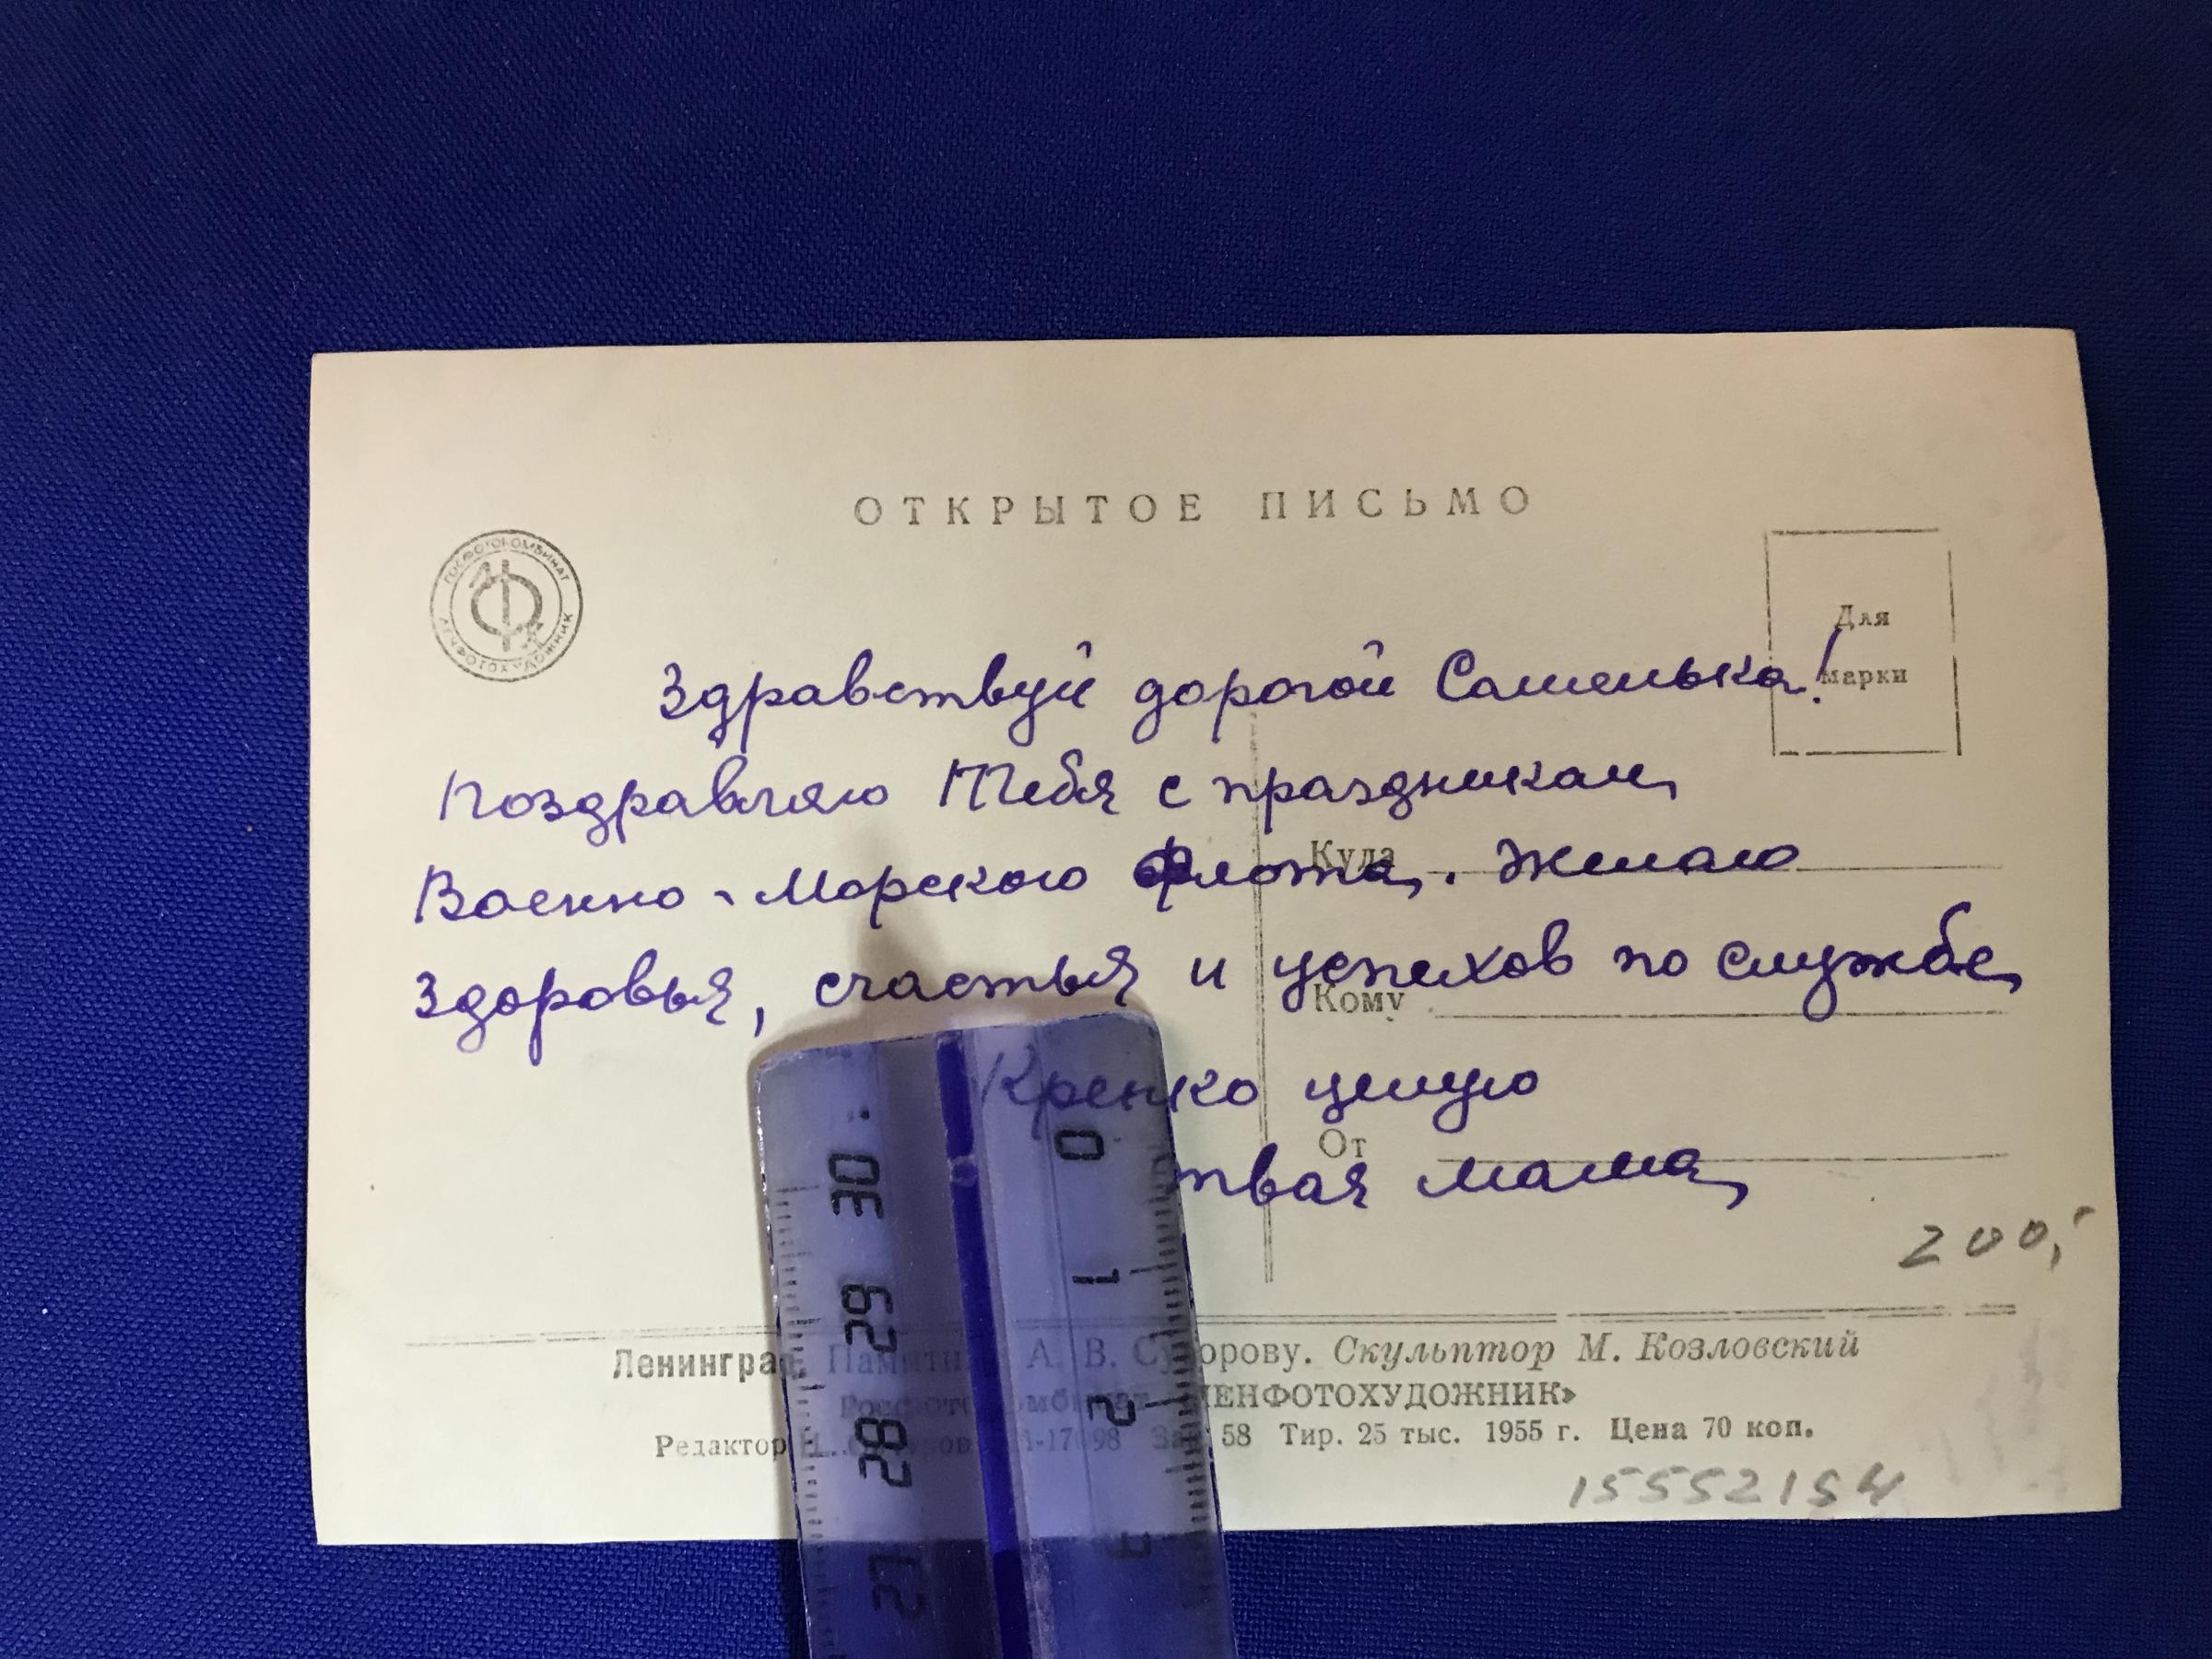 ОТКРЫТОЕ ПИСЬМО
ГОСФОТОКОМБИНАТ
ЛЕНФОТОХУДОЖНИК
Для
марки
Здравствуй дорогой Сашенька!
Поздравляю Тебя с праздникам
Военно-Морского Флота. Желаю
здоровья, счастья и успехов по службе
Крепко целую
твая мама
Куда
Кому
От
200,-
Ленинград Памятник А. В. Суворову. Скульптор М. Козловский
Росфотокомбинат «ЛЕНФОТОХУДОЖНИК»
Редактор 58 Тир. 25 тыс. 1955 г. Цена 70 коп.
15552154
30 29 28 27
0 1 2 3